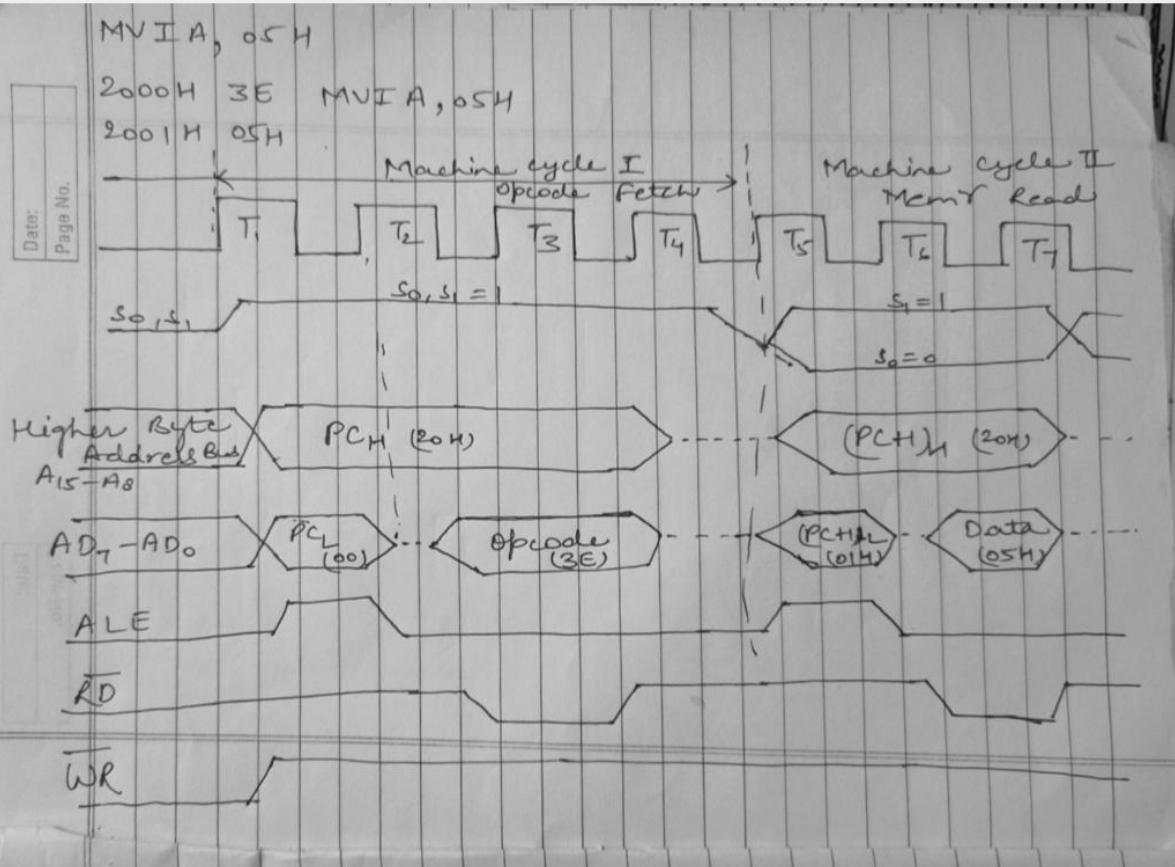 MVI A, 05H
2000H 3E MVI A, 05H
2001H 05H
Date:
Page No.
Machine cycle I
Opcode Fetch
Machine cycle II
Memr Read
T1 T2 T3 T4 T5 T6 T7
S0, S1
S0, S1 = 1
S1 = 1
S0 = 0
Higher Byte
Address Bus
A15-A8
PCH (20H)
(PCH)H (20H)
AD7-AD0
PCL
(00)
Opcode
(3E)
(PCH)L
(01H)
Data
(05H)
ALE
R̅D̅
W̅R̅